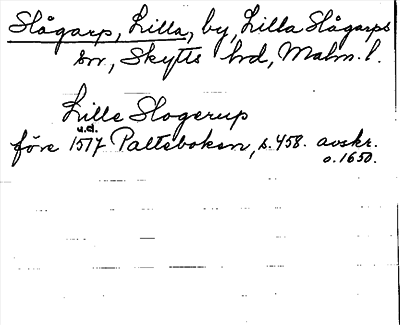 Slågarp, Lilla, by, Lilla Slågarps
sn, Skytts hrd, Malm. l.
Lille Slogerup
u.d.
före 1517 Palteboken, s. 458. avskr.
o. 1650.